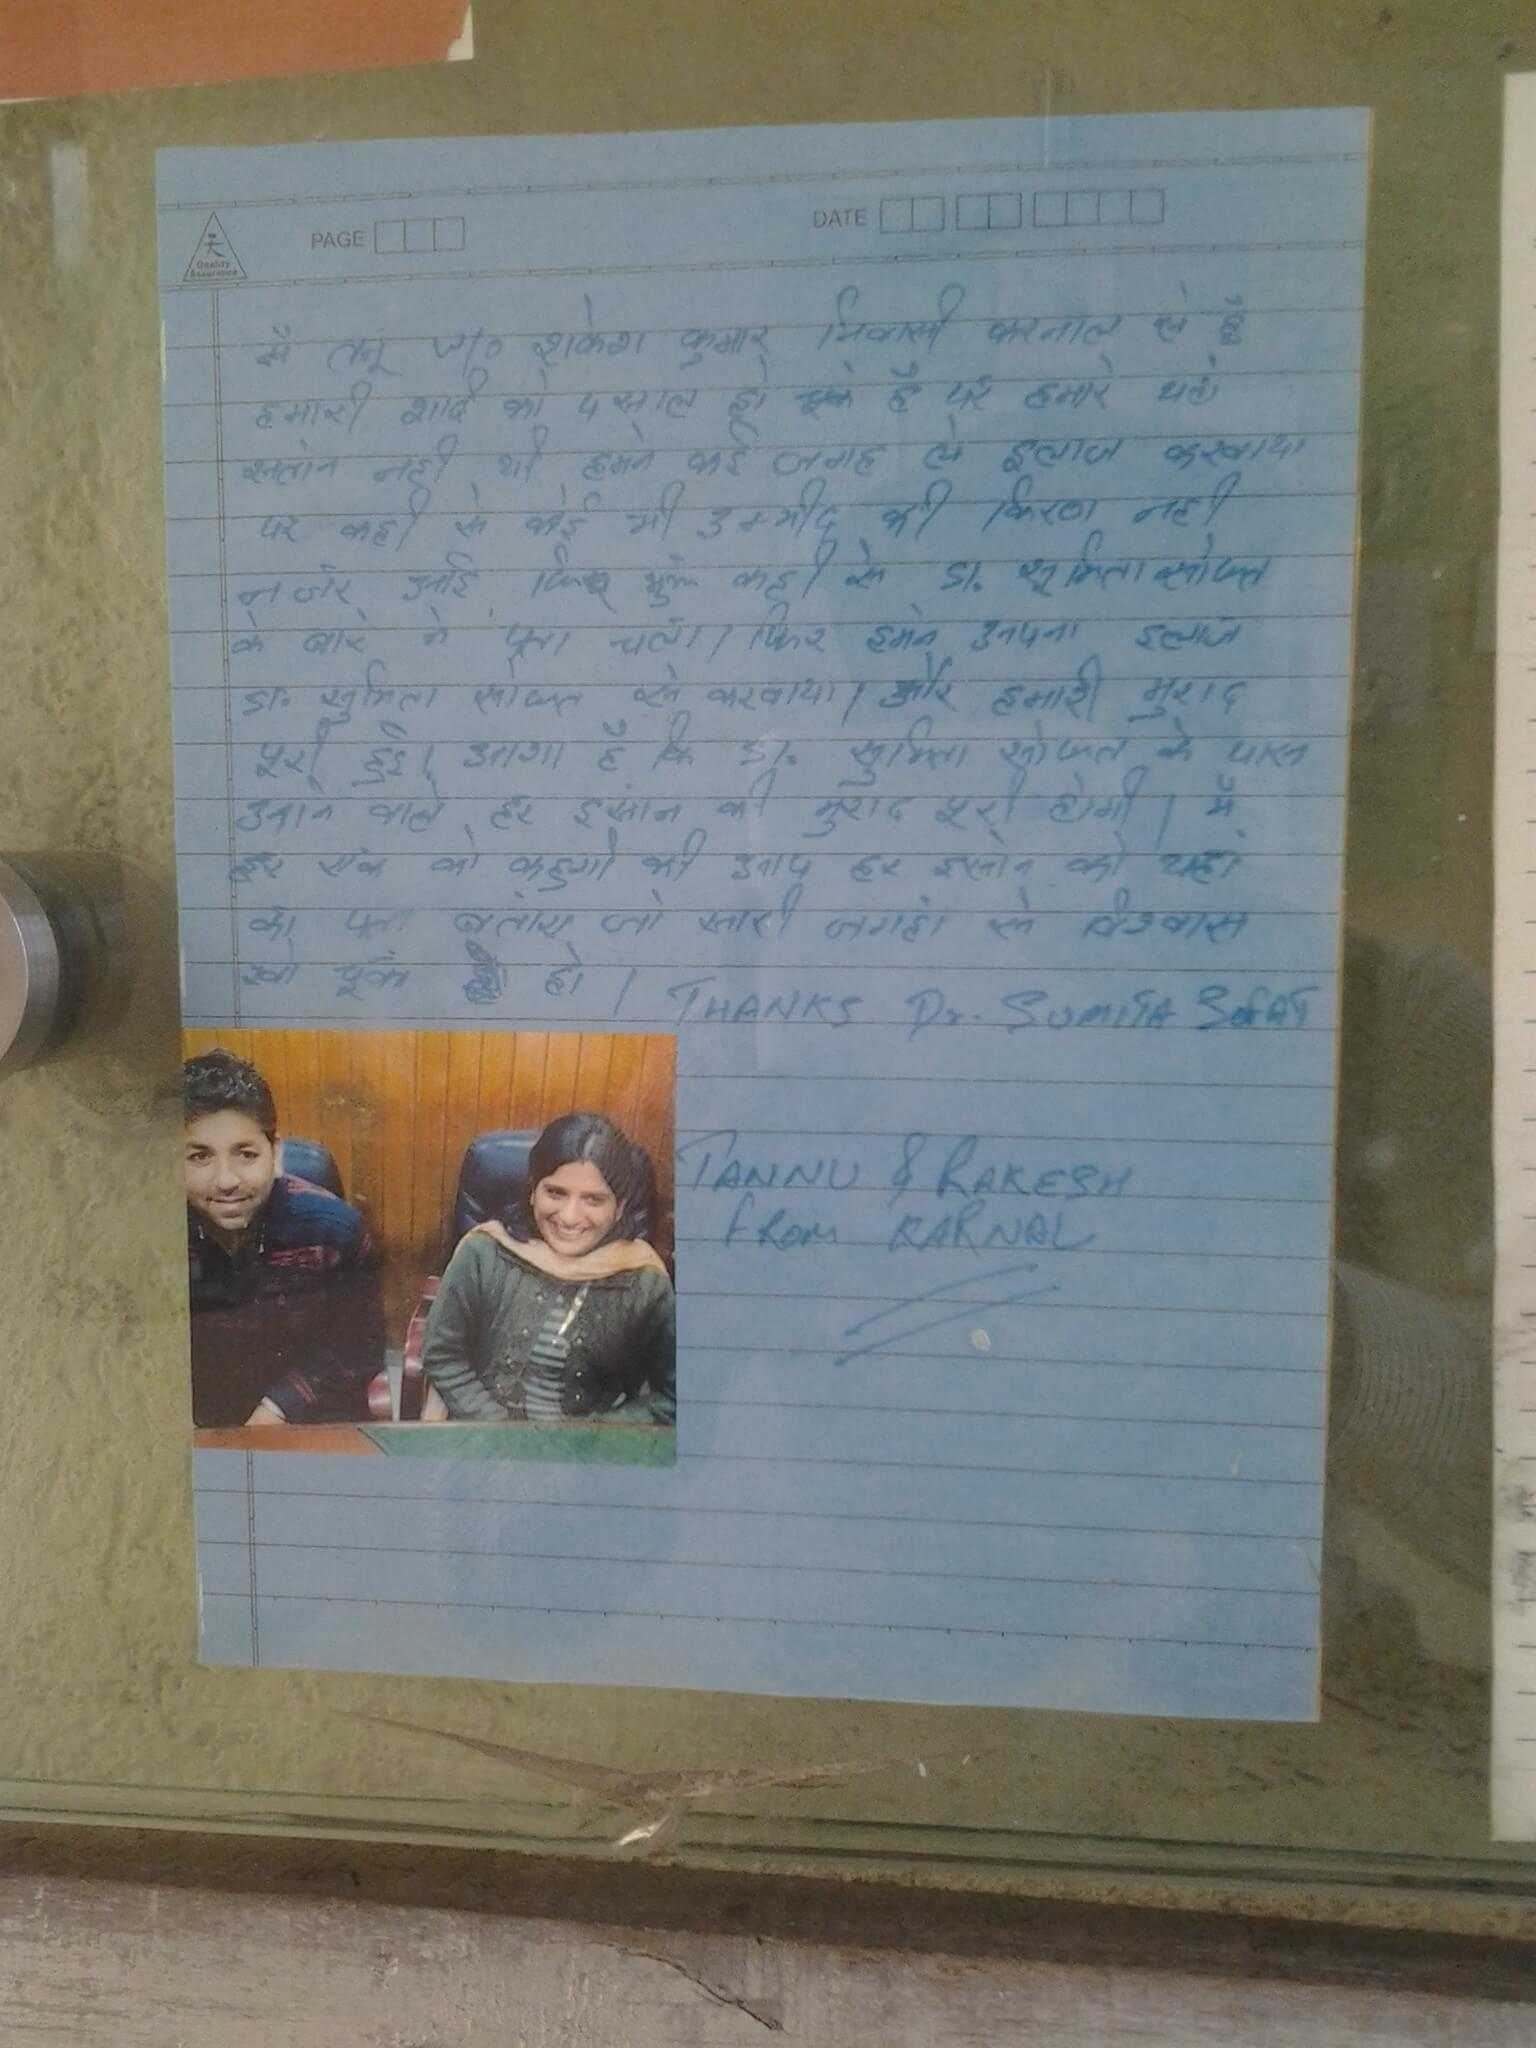 Quality
Assurance
PAGE
DATE
मैं तनू W/o राकेश कुमार निवासी करनाल से हूँ
हमारी शादी को 5 साल हो चुके है पर हमारे यहाँ
सन्तान नही थी हमने कई जगह से इलाज करवाया
पर कही से कोई भी उम्मीद की किरण नही
नजर आई फिर मुझे कही से डा. सुमिता सोफत
के बारे मे पता चला। फिर हमने अपना इलाज
डा. सुमिता सोफत से करवाया। और हमारी मुराद
पूरी हुई। आशा है कि डा. सुमिता सोफत के पास
आने वाले हर इंसान की मुराद पूरी होगी। मैं
हर को कहुगी की आप हर इन्सान को यहां
का पता बताएं जो सारी जगहां से विश्वास
खो चूके हो।
THANKS Dr. SUMITA SOFAT
TANNU & RAKESH
from KARNAL